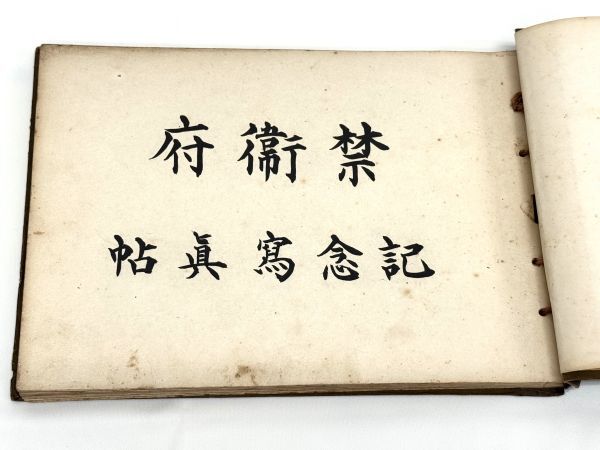 禁衞府
記念寫眞帖